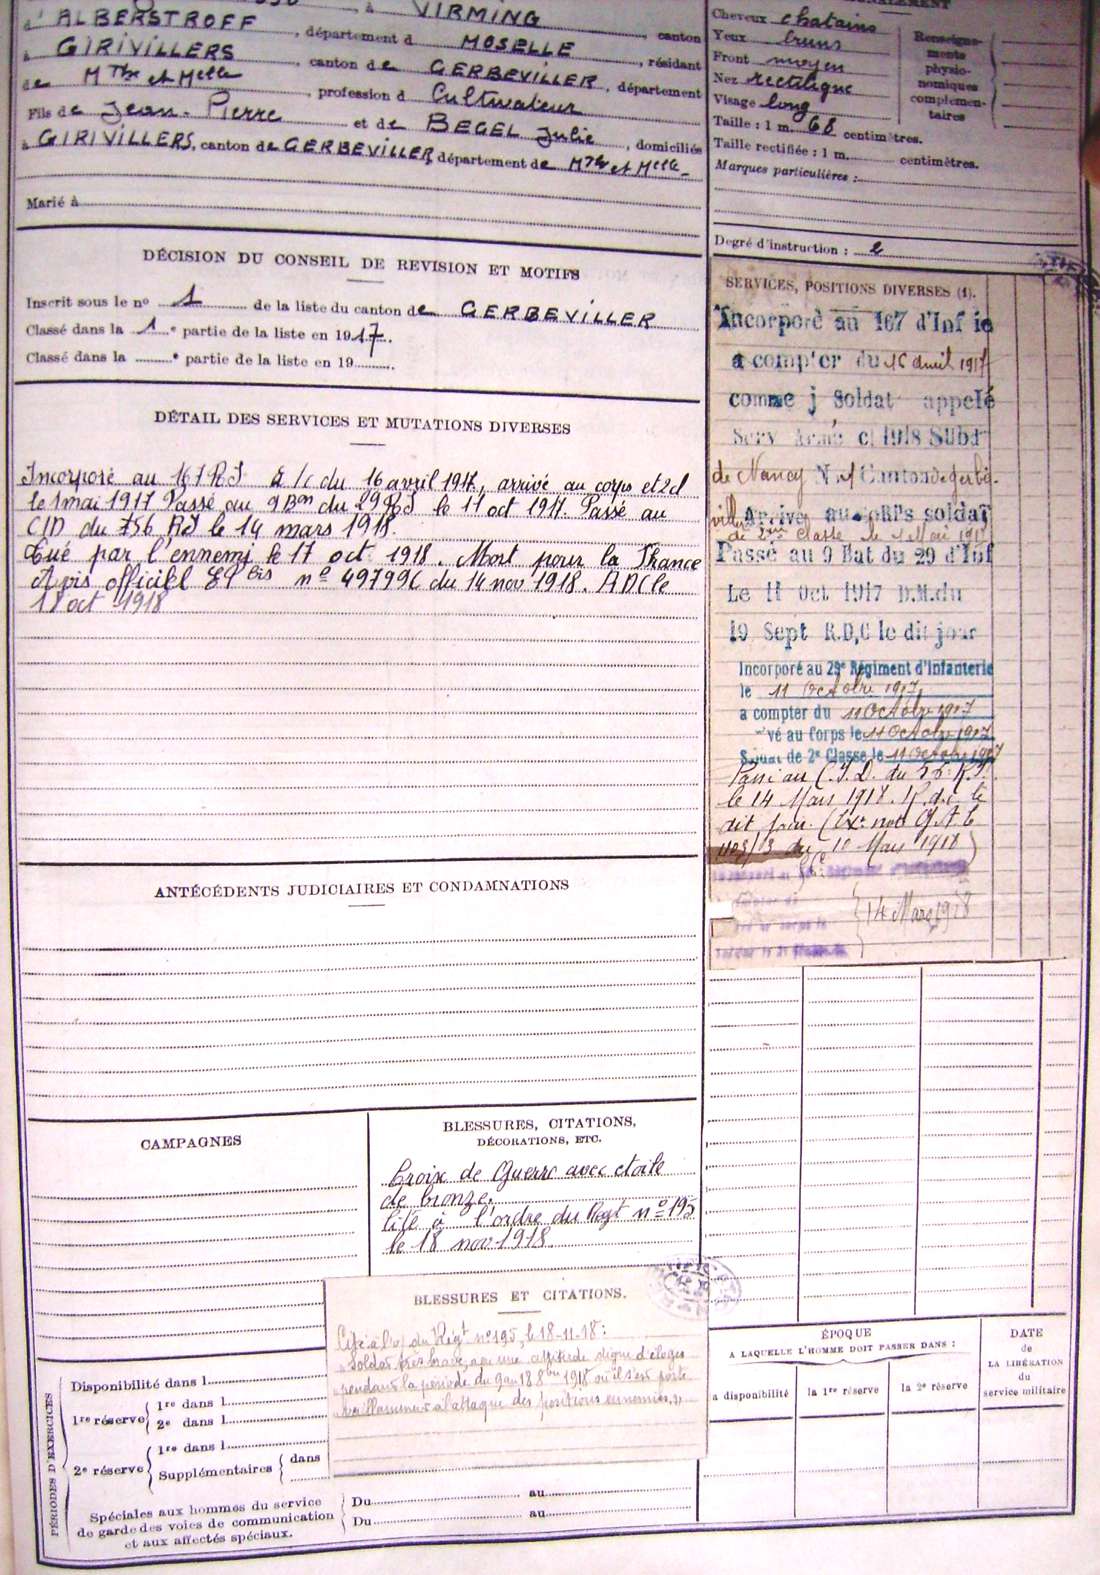 à VIRMING
d'ALBERSTROFF, département d MOSELLE, canton
à GIRIVILLERS, canton de GERBEVILLER, résidant
de Mthe et Melle, profession d Cultivateur, département
Fils de Jean-Pierre et de BEGEL Julie, domiciliés
à GIRIVILLERS, canton de GERBEVILLER, département de Mthe et Melle
Marié à
DÉCISION DU CONSEIL DE REVISION ET MOTIFS
Inscrit sous le no 1 de la liste du canton de GERBEVILLER
Classé dans la 1 e partie de la liste en 1917.
Classé dans la e partie de la liste en 19
DÉTAIL DES SERVICES ET MUTATIONS DIVERSES
Incorporé au 167 RI à /c du 16 avril 1917, arrivé au corps et 2cl
le 1 mai 1917 Passé au 9 Bon du 29 RI le 11 oct 1917. Passé au
CID du RI le 14 mars 1918.
Tué par l'ennemi le 17 oct 1918. Mort pour la France
Avis officiel bis no 49799 du 14 nov 1918. ADC le
18 oct 1918
ANTÉCÉDENTS JUDICIAIRES ET CONDAMNATIONS
CAMPAGNES
BLESSURES, CITATIONS,
DÉCORATIONS, ETC.
Croix de Guerre avec etoile
de bronze.
Cité à l'ordre du Regt no 195
le 18 nov 1918.
BLESSURES ET CITATIONS.
Cité à l'o/ du Régt no 195, le 18-11-18:
"Soldat très brave, a eu une attitude digne d'éloges
pendant la période du 9 au 18 8bre 1918 où il s'est porté
vaillamment à l'attaque des positions ennemies."
PÉRIODES D'EXERCICES
Disponibilité dans l
1re réserve
1re dans l
2e dans l
2e réserve
1re dans l
Supplémentaires
dans
Spéciales aux hommes du service
de garde des voies de communication
et aux affectés spéciaux.
Du au
Du au
Cheveux chatains
Yeux bruns
Front moyen
Nez rectiligne
Visage long
Taille : 1 m. 68 centimètres.
Taille rectifiée : 1 m. centimètres.
Marques particulières :
Renseigne-
ments
physio-
nomiques
complémen-
taires
Degré d'instruction : 2
SERVICES, POSITIONS DIVERSES (1).
Incorporé au 167 d'Inf ie
a compter du 16 avril 1917
comme j Soldat appelé
Serv Armé cl 1918 Subd
de Nancy N 1 Canton de Gerbé-
viller Arrivé au corps soldat
de 2me classe le 1 Mai 1917
Passé au 9 Bat du 29 d'Inf
Le 11 Oct 1917 D.M.du
19 Sept R.D,C le dit jour
Incorporé au 29e Régiment d'infanterie
le 11 Octobre 1917
a compter du 11 Octobre 1917
vé au Corps le 11 Octobre 1917
Soldat de 2e Classe le 11 Octobre 1917
Passé au C.I.D. du R.I.
le 14 Mars 1918. R.d.c. le
dit jour.
/3 du 10 Mars 1918)
14 Mars 1918
ÉPOQUE
A LAQUELLE L'HOMME DOIT PASSER DANS :
la disponibilité
la 1re réserve
la 2e réserve
DATE
de
LA LIBÉRATION
du
service militaire